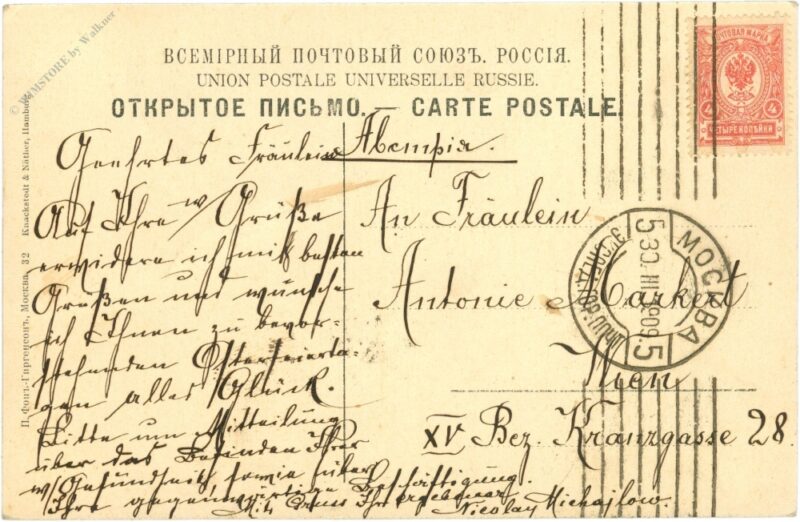 ВСЕМІРНЫЙ ПОЧТОВЫЙ СОЮЗЪ. РОССІЯ.
UNION POSTALE UNIVERSELLE RUSSIE.
ОТКРЫТОЕ ПИСЬМО. — CARTE POSTALE.
ПОЧТОВАЯ МАРКА
4 4
ЧЕТЫРЕ КОПѢЙКИ
© by Walkner
П. фонъ-Гиргенсонъ, Москва, 32 Knackstedt & Näther, Hamburg
Geehrtes Fräulein
Auf Ihre w/ Grüße
erwidere ich mit besten
Grüßen und wünsche
ich Ihnen zu bevor-
stehenden Osterfeierta-
gen alles Glück.
Bitte um Mitteilung
über das Befinden Ihrer
w/ Gesundheit, sowie über
Ihre gegenwärtige Beschäftigung.
Mit Gruss Ihr ergebener
Nicolay Michajlow.
Австрія.
An Fräulein
Antonie Markert
Wien
XV Bez. Kranzgasse 28.
МОСКВА
5 30. III 1909. 5